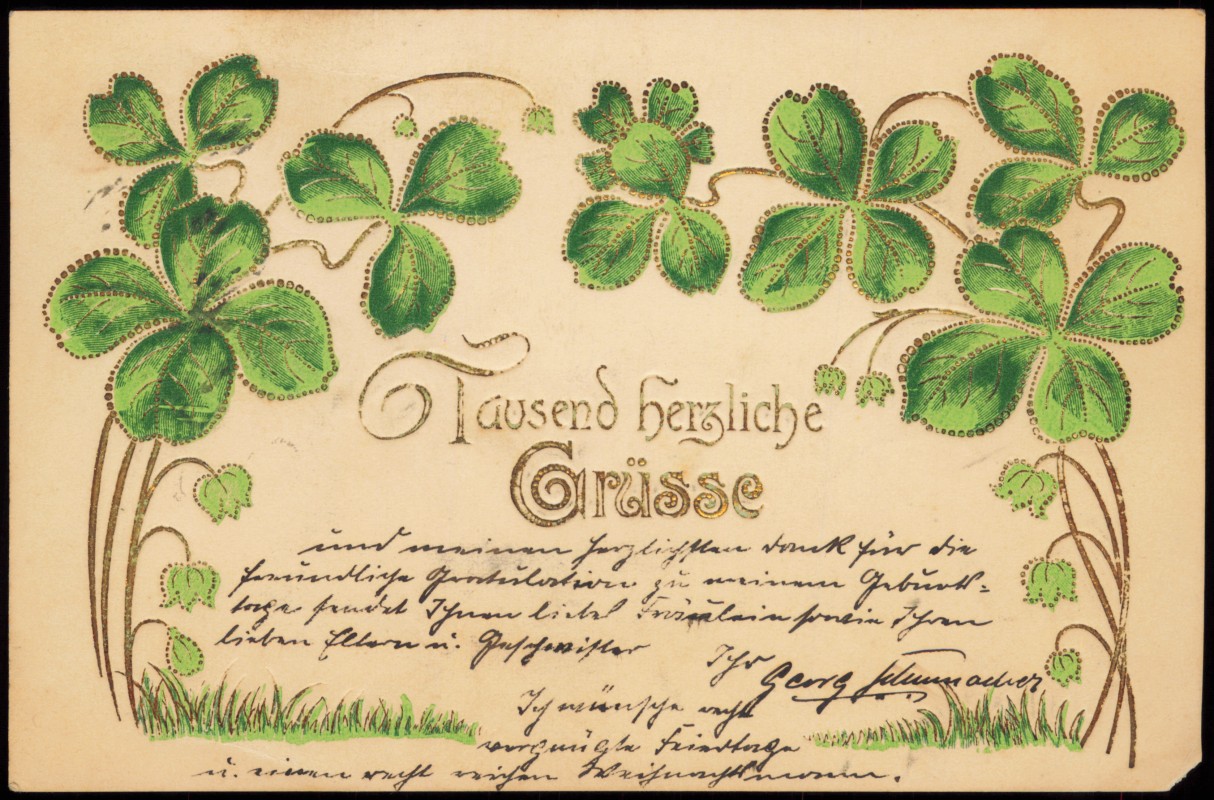 Tausend herzliche
Grüsse
und meinen herzlichsten Dank für die
freundliche Gratulation zu meinem Geburts-
tage sendet Ihnen liebes Fräulein sowie Ihren
lieben Eltern u. Geschwister
Ihr Georg Schumacher
Ich wünsche recht
vergnügte Feiertage
u. einen recht reichen Weihnachtsmann.